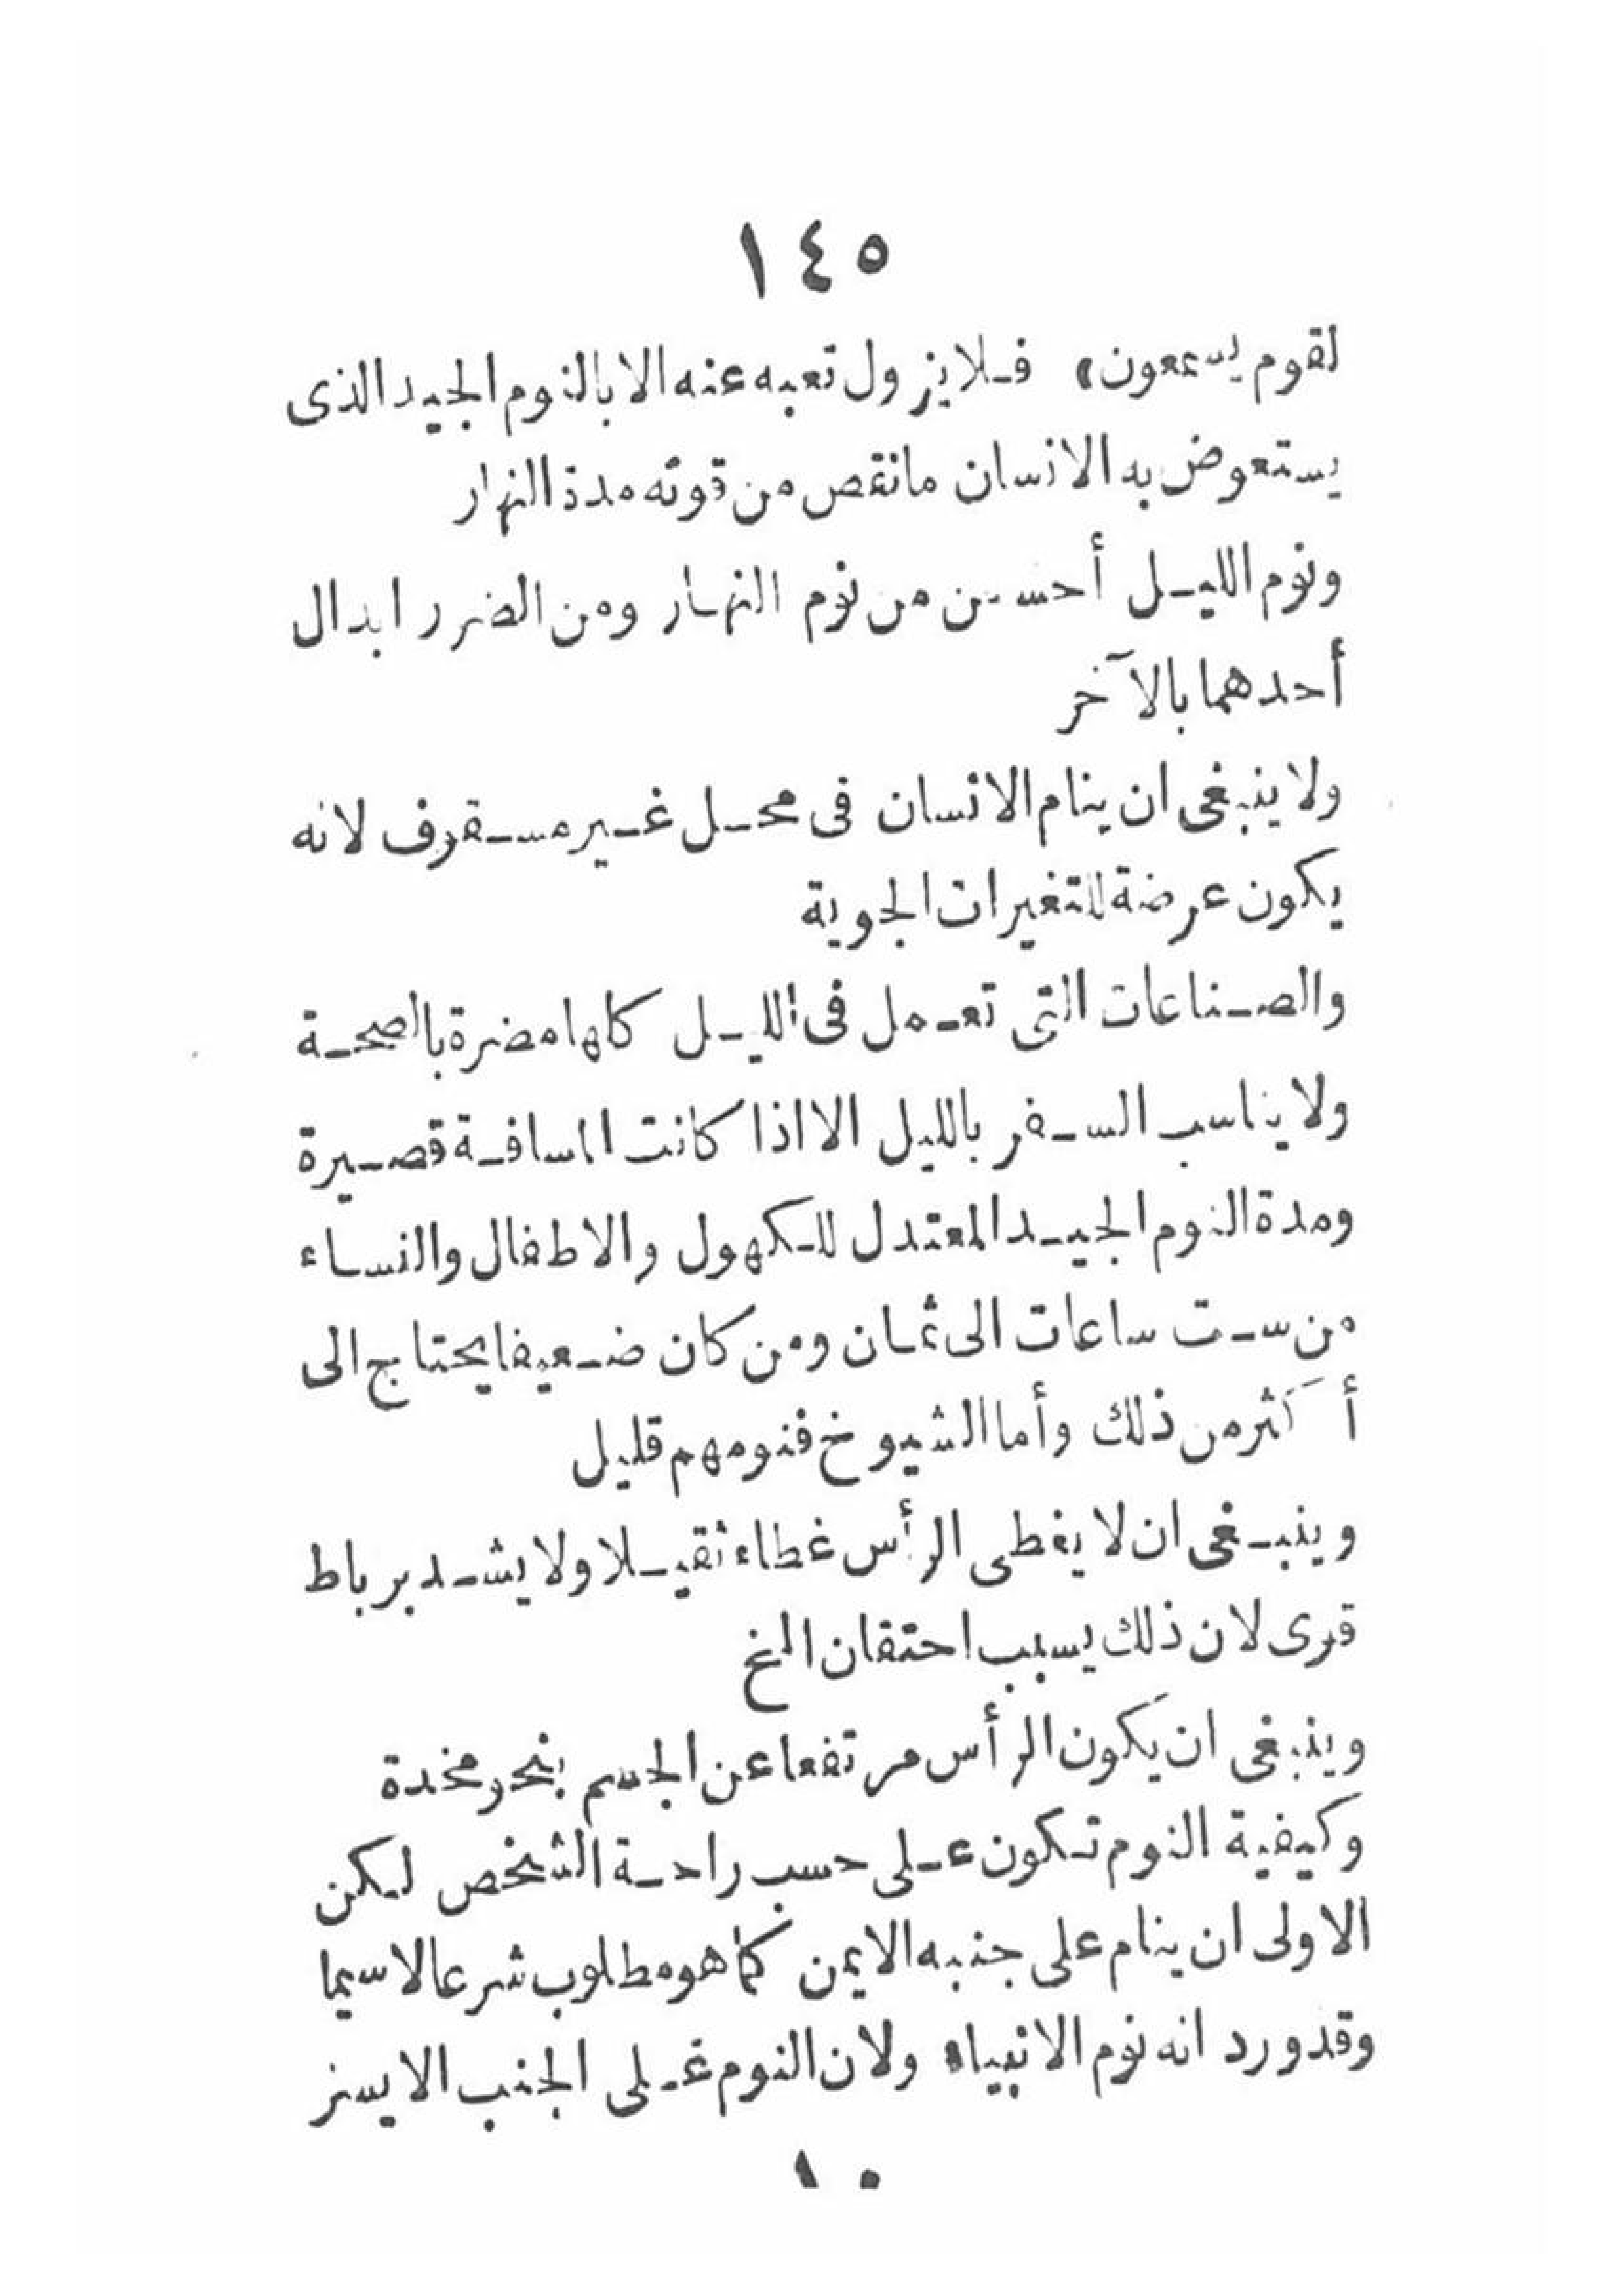 ١٤٥
لقوم يسمعون» فلا يزول تعبه عنه الا بالنوم الجيد الذى
يستعوض به الانسان مانقص من قوته مدة النهار
ونوم الليل أحسن من نوم النهار ومن الضرر ابدال
أحدهما بالآخر
ولا ينبغى ان ينام الانسان فى محل غير مسقوف لانه
يكون عرضة للتغيرات الجوية
والصناعات التى تعمل فى الليل كلها مضرة بالصحة
ولا يناسب السفر بالليل الا اذا كانت المسافة قصيرة
ومدة النوم الجيد المعتدل للكهول والاطفال والنساء
من ست ساعات الى ثمان ومن كان ضعيفا يحتاج الى
أكثر من ذلك وأما الشيوخ فنومهم قليل
وينبغى ان لا يغطى الرأس غطاء ثقيلا ولا يشد برباط
قوى لان ذلك يسبب احتقان المخ
وينبغى ان يكون الرأس مرتفعا عن الجسم بنحو مخدة
وكيفية النوم تكون على حسب راحة الشخص لكن
الاولى ان ينام على جنبه الايمن كما هو مطلوب شرعا لاسيما
وقد ورد انه نوم الانبياء ولان النوم على الجنب الايسر
١٠